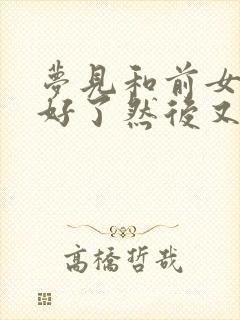 夢見和前女
好了然後又
高橋哲哉